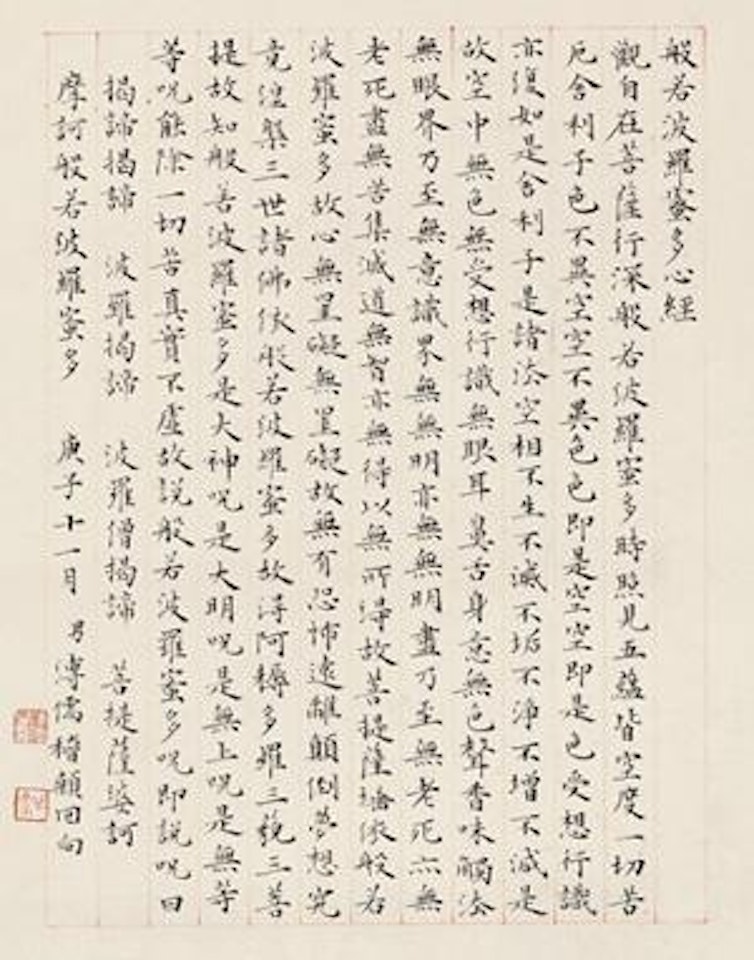 般若波羅蜜多心經
觀自在菩薩行深般若波羅蜜多時照見五蘊皆空度一切苦
厄舍利子色不異空空不異色色即是空空即是色受想行識
亦復如是舍利子是諸法空相不生不滅不垢不淨不增不減是
故空中無色無受想行識無眼耳鼻舌身意無色聲香味觸法
無眼界乃至無意識界無無明亦無無明盡乃至無老死亦無
老死盡無苦集滅道無智亦無得以無所得故菩提薩埵依般若
波羅蜜多故心無罣礙無罣礙故無有恐怖遠離顛倒夢想究
竟涅槃三世諸佛依般若波羅蜜多故得阿耨多羅三藐三菩
提故知般若波羅蜜多是大神呪是大明呪是無上呪是無等
等呪能除一切苦真實不虛故說般若波羅蜜多呪即說呪曰
揭諦揭諦 波羅揭諦 波羅僧揭諦 菩提薩婆訶
摩訶般若波羅蜜多 庚子十一月 男溥儒稽回向